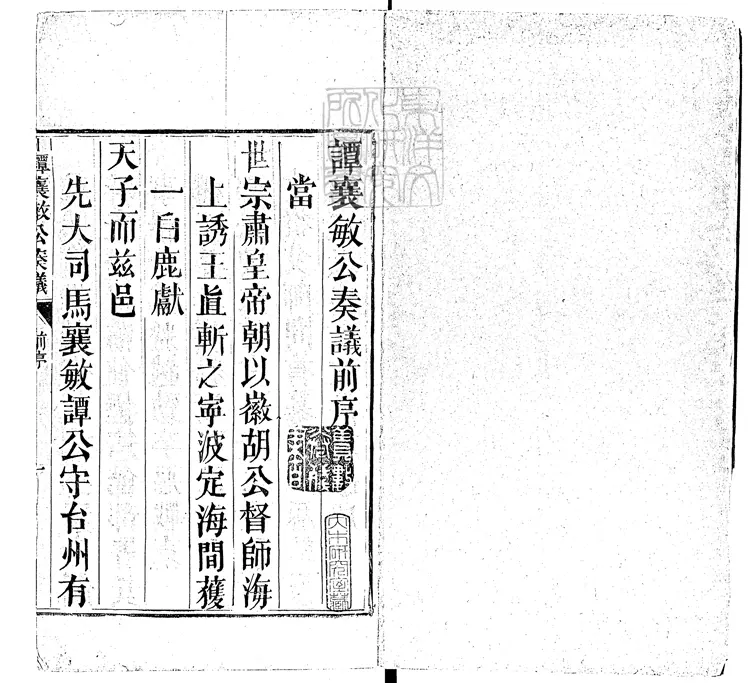 譚襄敏公奏議前序
當
世宗肅皇帝朝以徽胡公督師海
上誘王直斬之寧波定海間獲
一白鹿獻
天子而茲邑
先大司馬襄敏譚公守台州有
譚襄敏公奏議
前序